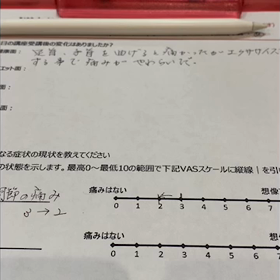 日の講座受講後の変化はありましたか?
足首、手首を曲げると痛かったがエクササイズ
する事で痛みがやわらいだ。
エット面:
面:
面:
なる症状の現状を教えてください
の状態を示します。最高0~最低10の範囲で下記VASスケールに縦線 | を引い
節の痛み
3→2
痛みはない 想像
0 1 2 3 4 5 6 7
痛みはない 想像
0 1 2 3 4 5 6